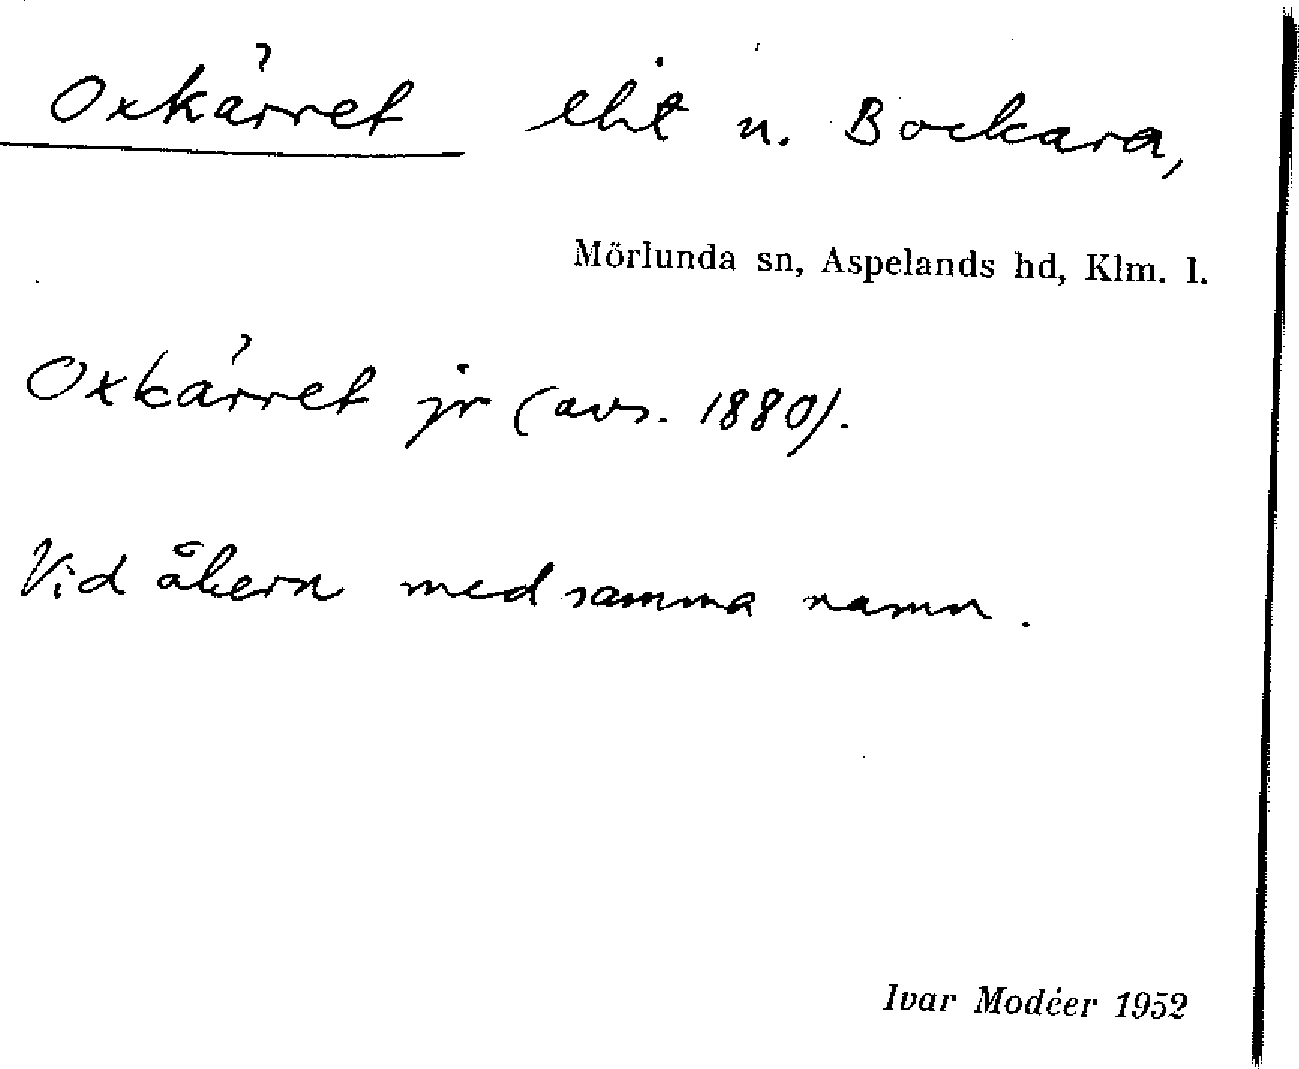 Oxkärret eht n. Bockara,
Mörlunda sn, Aspelands hd, Klm. l.
Oxkärret jr (avs. 1880).
Vid åkern med samma namn.
Ivar Modéer 1952